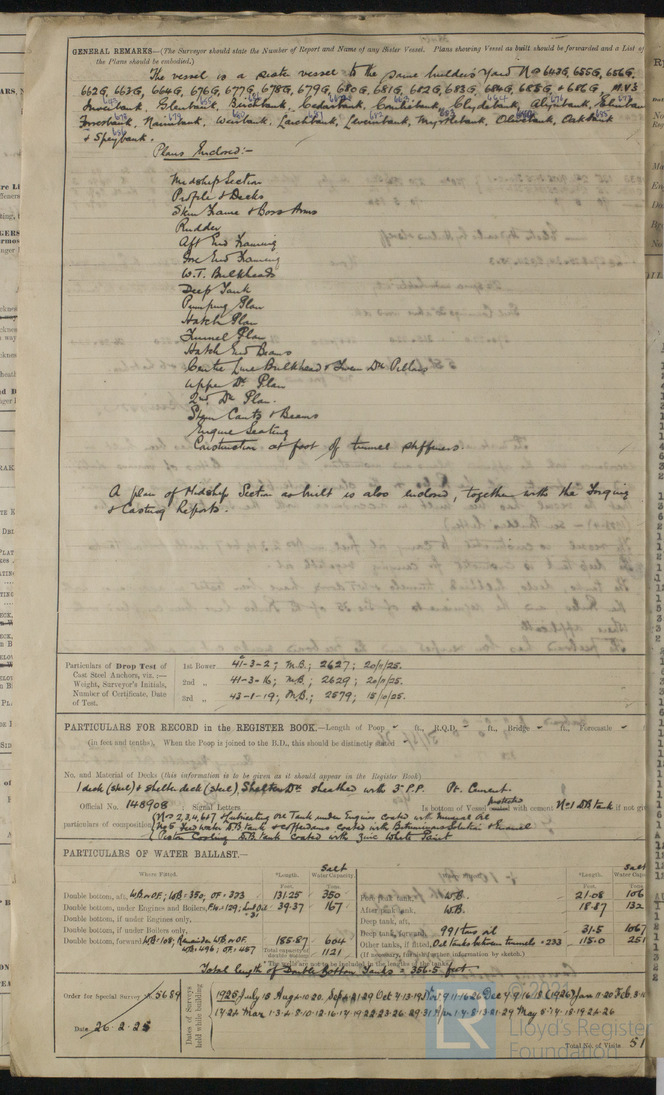 GENERAL REMARKS—(The Surveyor should state the Number of Report and Name of any Sister Vessel. Plans showing Vessel as built should be forwarded and a List of
the Plans should be embodied.)
The vessel is a sister vessel to the same builders Yard Nos 643G, 655G, 656G,
662G, 663G, 664G, 676G, 677G, 678G, 679G, 680G, 681G, 682G, 683G, 684G, 685G & 686G, M.V.S
Inverbank, Glenbank, Birchbank, Cedarbank, Comliebank, Clydebank, Alynbank, Elmbank
Forresbank, Nairnbank, Weirbank, Larchbank, Levernbank, Myrtlebank, Olivebank, Oakbank
& Speybank.
Plans Enclosed:-
Midship Section
Profile & Decks
Stern Frame & Boss Arms
Rudder
Aft End Framing
Fore End Framing
W.T. Bulkheads
Deep Tank
Pumping Plan
Hatch Plan
Tunnel Plan
Hatch End Beams
Centre Line Bulkhead & Tween Dk Pillars
Upper Dk Plan
2nd Dk Plan.
Stern Cants & Beams
Engine Seating
Construction at foot of tunnel stiffeners
A plan of Midship Section as built is also enclosed, together with the Forging
& Casting Reports.
Particulars of Drop Test of
Cast Steel Anchors, viz.:—
Weight, Surveyor's Initials,
Number of Certificate, Date
of Test.
1st Bower 41-3-2; M.B.; 2627; 20/11/25.
2nd „ 41-3-16; M.B.; 2629; 20/11/25.
3rd „ 43-1-19; M.B.; 2579; 15/10/25.
PARTICULARS FOR RECORD in the REGISTER BOOK.—Length of Poop - ft., R.Q.D. - ft., Bridge - ft., Forecastle -
(in feet and tenths). When the Poop is joined to the B.D., this should be distinctly stated -
No. and Material of Decks (this information is to be given as it should appear in the Register Book)
1 deck (steel) & shelter deck (steel) Shelter Dk sheathed with 3" P.P. Pt. Cement.
Official No. 148908 Signal Letters Is bottom of Vessel coated with cement No 1 DB tank if not give
particulars of composition Nos 2,3,4,6,7 & lubricating oil Tank under Engines coated with mineral Oil
No 5 Feed water D.B tank & cofferdams coated with Bituminous Solution & Enamel
Piston Cooling D.B tank coated with Zinc White Paint
PARTICULARS OF WATER BALLAST.—
Where Fitted. *Length. Feet. Salt Water Capacity.
Double bottom, aft, WB or OF; WB=350; OF=323 131.25 350
Double bottom, under Engines and Boilers, 39.37 167
Double bottom, if under Engines only,
Double bottom, if under Boilers only,
Double bottom, forward WB=108; Remainder WB or OF 185.87 604
WB=496; OF=457 Total capacity of double bottom 1121
Total length of Double Bottom Tanks = 356.5 feet
*Length. Feet. Salt Water Capacity.
Fore peak tank, W.B. 21.08 106
After peak tank, W.B. 18.87 132
Deep tank, aft,
Deep tank, forward, 991 tons oil 31.5 1067
Other tanks, if fitted, Oil tanks between tunnels = 233 115.0 251
(If necessary, furnish further information by sketch.)
Order for Special Survey No. 5689
Date 26.2.25
Dates of Surveys held while building
1925 July 13 Aug 4.10.20. Sept 4.21.29 Oct 7.13.19 Nov 9.11.16.26 Dec 4.9.16.18 (1926) Jan 11.20 Feb.
17.24 Mar 1.3.4.8.10.12.16.17.19.22.23.26.29.31 Apr 1.7.8.13.21.29 May 5.7.14.18.19.24.26
Total No. of Visits 51
© 2021
LR
Lloyd's Register
Foundation